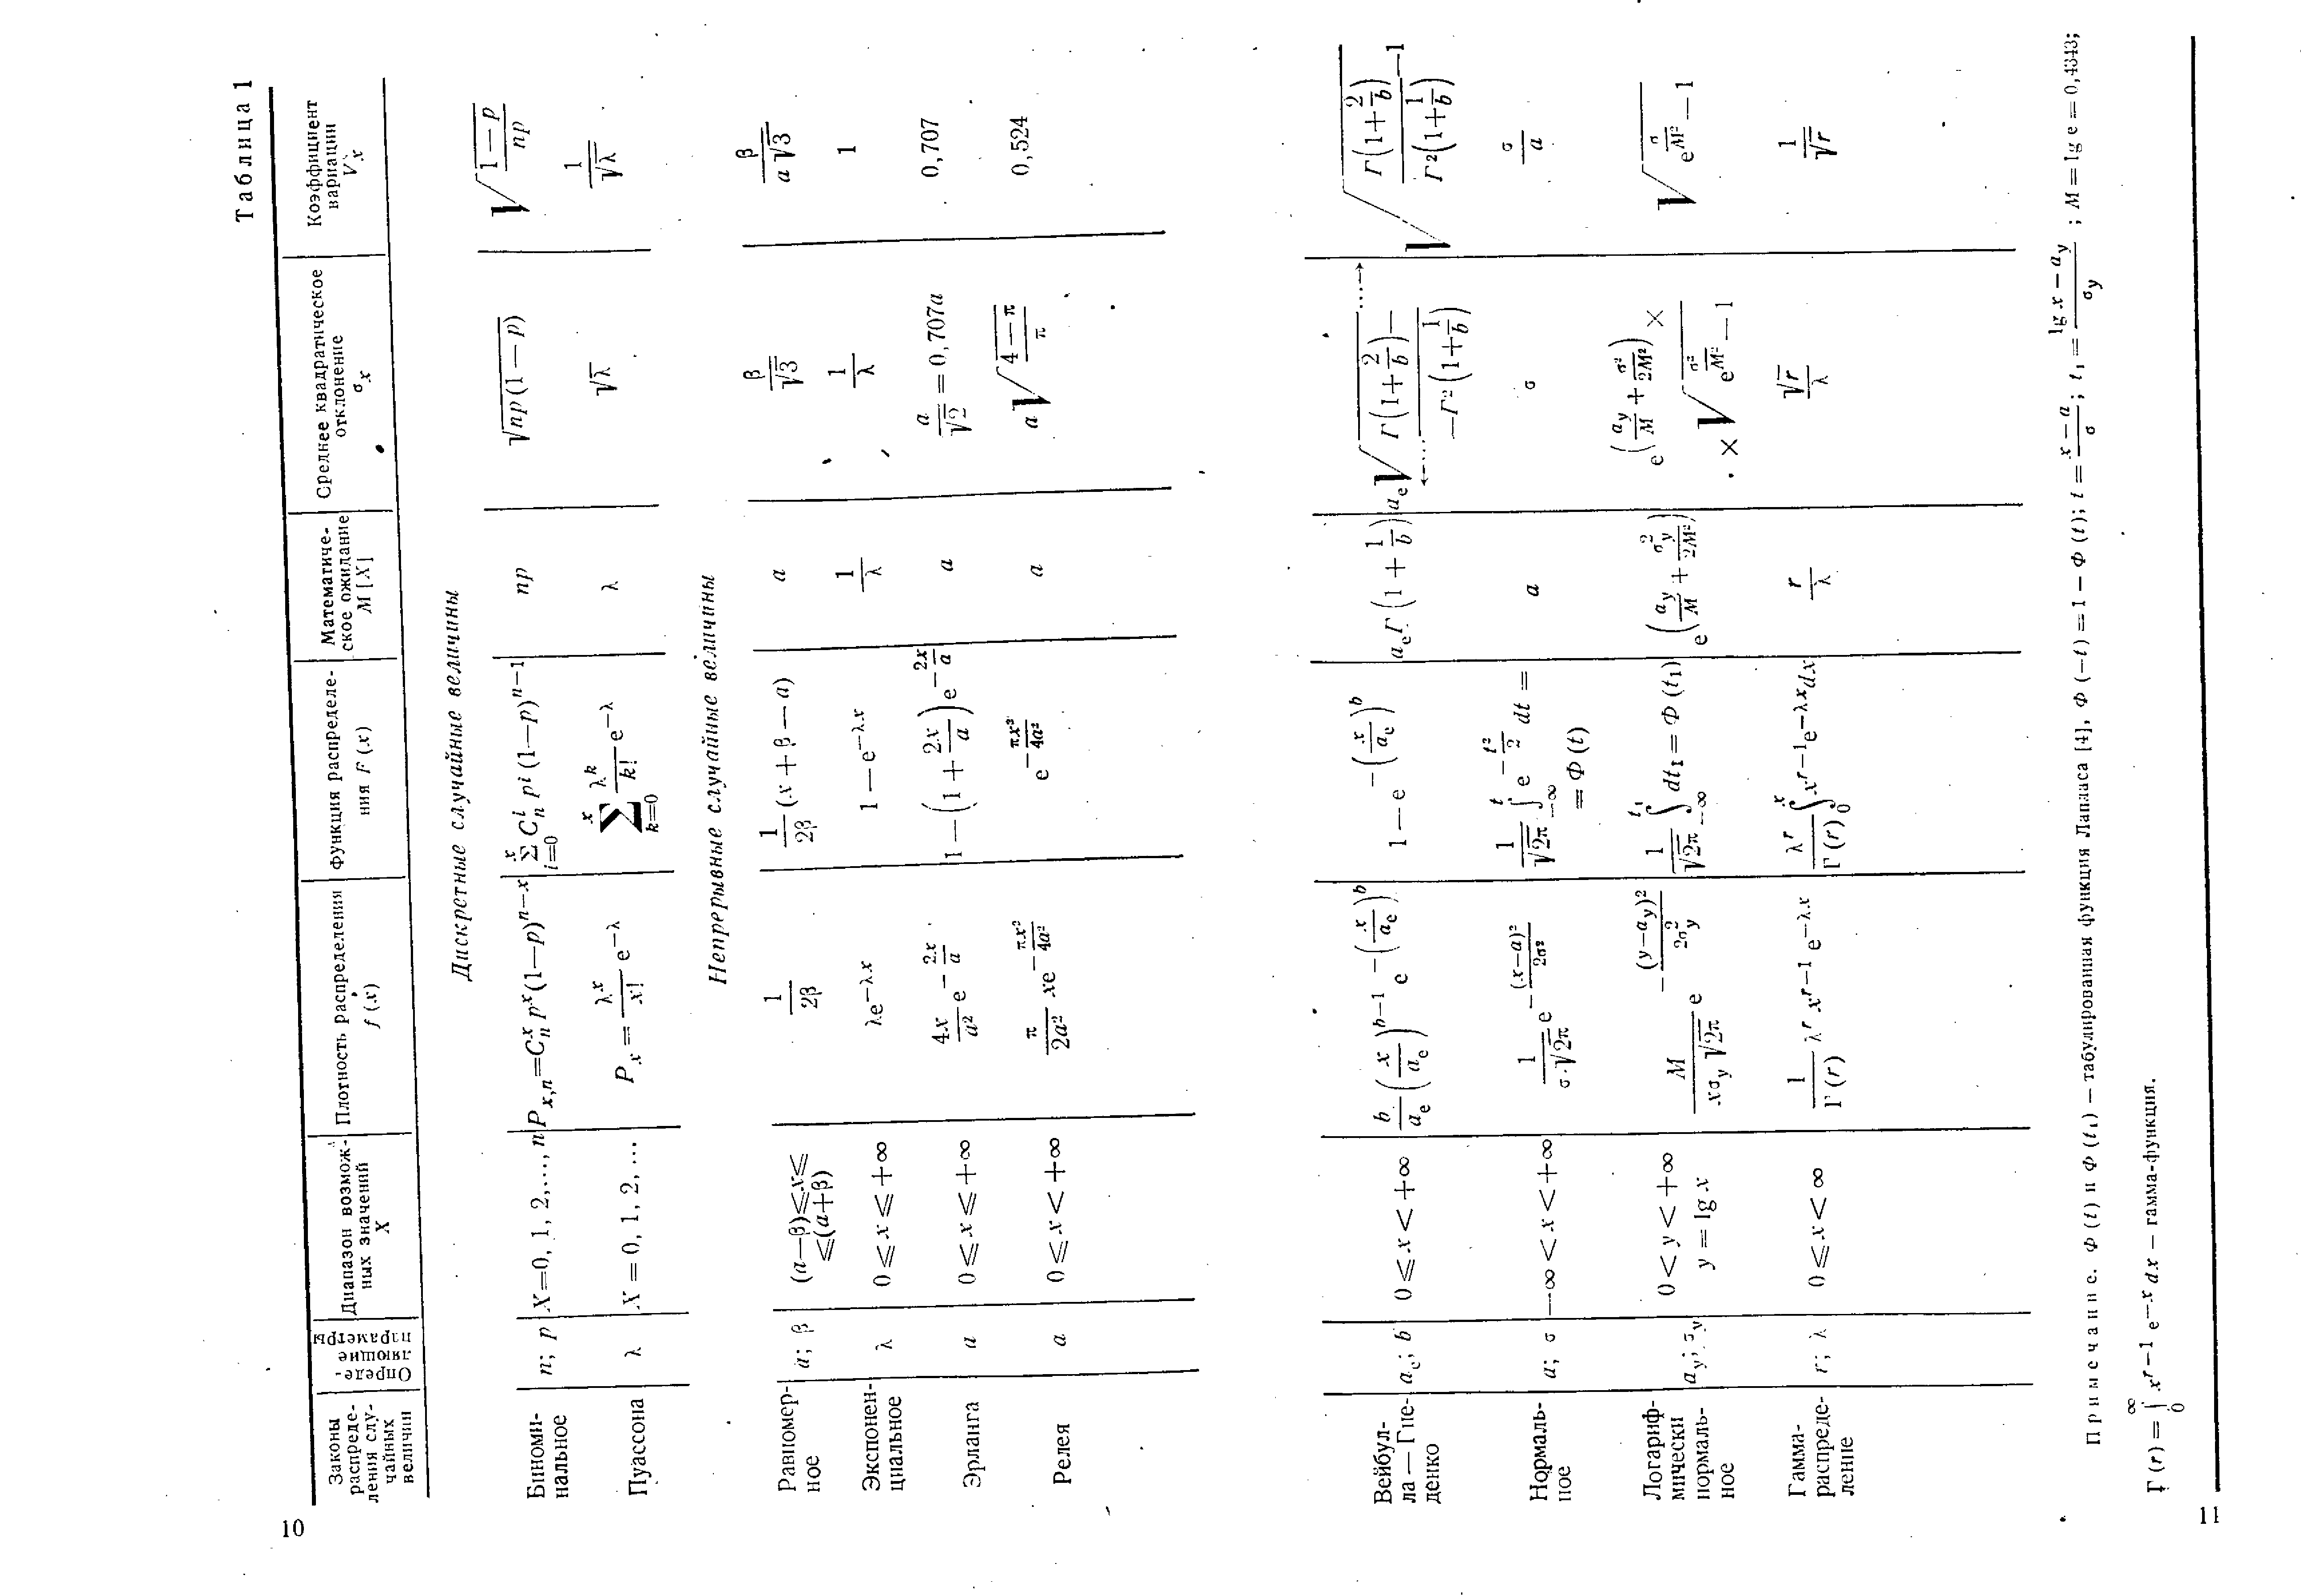 Таблица 1
Законы распределения случайных величин | Определяющие параметры | Диапазон возможных значений X | Плотность распределения f (x) | Функция распределения F (x) | Математическое ожидание M [X] | Среднее квадратическое отклонение σ_x | Коэффициент вариации V_x
Дискретные случайные величины
Биномиальное | n; p | X=0, 1, 2,..., n | P_{x,n}=C_n^x p^x (1—p)^{n—x} | \sum_{i=0}^{x} C_n^i p^i (1—p)^{n—1} | np | \sqrt{np (1—p)} | \sqrt{\frac{1—p}{np}}
Пуассона | λ | X = 0, 1, 2, ... | P_x = \frac{λ^x}{x!} e^{—λ} | \sum_{k=0}^{x} \frac{λ^k}{k!} e^{—λ} | λ | \sqrt{λ} | \frac{1}{\sqrt{λ}}
Непрерывные случайные величины
Равномерное | a; β | (a—β)⩽x⩽ ⩽(a+β) | \frac{1}{2β} | \frac{1}{2β} (x + β — a) | a | \frac{β}{\sqrt{3}} | \frac{β}{a\sqrt{3}}
Экспоненциальное | λ | 0 ⩽ x ⩽ +∞ | λe^{—λx} | 1 — e^{—λx} | \frac{1}{λ} | \frac{1}{λ} | 1
Эрланга | a | 0 ⩽ x ⩽ +∞ | \frac{4x}{a^2} e^{—\frac{2x}{a}} | 1 — (1 + \frac{2x}{a}) e^{—\frac{2x}{a}} | a | \frac{a}{\sqrt{2}} = 0,707a | 0,707
Релея | a | 0 ⩽ x < +∞ | \frac{π}{2a^2} xe^{—\frac{πx^2}{4a^2}} | e^{—\frac{πx^2}{4a^2}} | a | a\sqrt{\frac{4—π}{π}} | 0,524
10
Вейбулла — Гнеденко | a_e; b | 0 ⩽ x < +∞ | \frac{b}{a_e} (\frac{x}{a_e})^{b—1} e^{—(\frac{x}{a_e})^b} | 1 — e^{—(\frac{x}{a_e})^b} | a_e Γ (1 + \frac{1}{b}) | a_e \sqrt{Γ(1+\frac{2}{b}) — —Γ^2(1+\frac{1}{b})} | \sqrt{\frac{Γ(1+\frac{2}{b})}{Γ^2(1+\frac{1}{b})} —1}
Нормальное | a; σ | —∞ < x < +∞ | \frac{1}{σ·\sqrt{2π}} e^{—\frac{(x—a)^2}{2σ^2}} | \frac{1}{\sqrt{2π}} \int_{—∞}^{t} e^{—\frac{t^2}{2}} dt = = Φ (t) | a | σ | \frac{σ}{a}
Логарифмически нормальное | a_y; σ_y | 0 < y < +∞ y = lg x | \frac{M}{xσ_y \sqrt{2π}} e^{—\frac{(y—a_y)^2}{2σ_y^2}} | \frac{1}{\sqrt{2π}} \int_{—∞}^{t_1} dt_1 = Φ (t_1) | e^{(\frac{a_y}{M} + \frac{σ_y^2}{2M^2})} | e^{(\frac{a_y}{M} + \frac{σ^2}{2M^2})} × × \sqrt{e^{\frac{σ^2}{M^2}} — 1} | \sqrt{e^{\frac{σ}{M^2}} — 1}
Гамма-распределение | r; λ | 0 ⩽ x < ∞ | \frac{1}{Γ (r)} λ^r x^{r—1} e^{—λx} | \frac{λ^r}{Γ (r)} \int_0^x x^{r—1} e^{—λx} dx | \frac{r}{λ} | \frac{\sqrt{r}}{λ} | \frac{1}{\sqrt{r}}
Примечание. Φ (t) и Φ (t_1) — табулированная функция Лапласа [4], Φ (—t) = 1 — Φ (t); t = \frac{x — a}{σ}; t_1 = \frac{lg x — a_y}{σ_y}; M = lg e = 0,4343;
Γ (r) = \int_0^∞ x^{r—1} e^{—x} dx — гамма-функция.
11